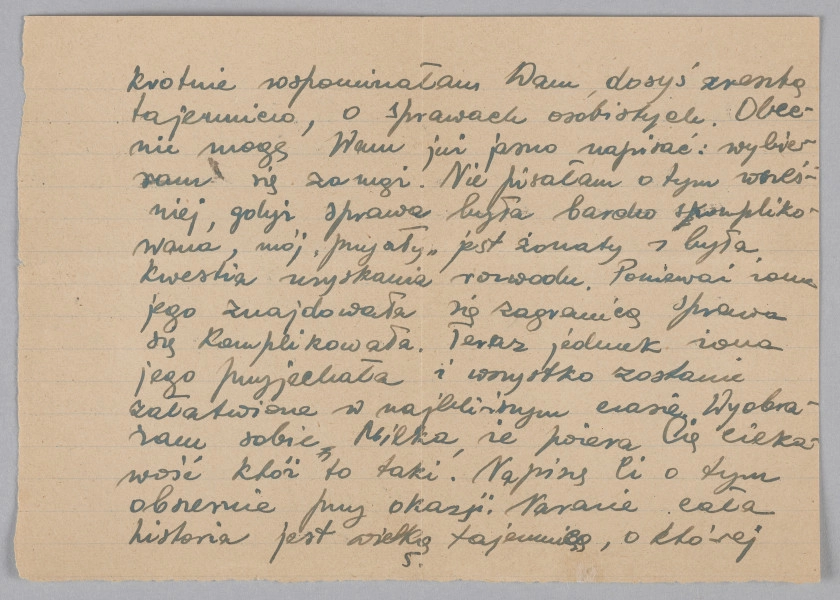 krotnie wspominałam Wam, dosyś zresztą
tajemnicio, o sprawach osobistych. Obec-
nie mogę Wam już jasno napisać: wybie-
ram się za mąż. Nie pisałam o tym wcześ-
niej, gdyż sprawa była bardzo skompliko-
wana, mój „przyszły” jest żonaty i była
kwestia uzyskania rozwodu. Ponieważ żona
jego znajdowała się zagranicą sprawa
się komplikowała. Teraz jednak żona
jego przyjechała i wszystko zostanie
załatwione w najbliższym czasie. Wyobra-
żam sobie, Milka, że pożera Cię cieka-
wość któż to taki. Napiszę Ci o tym
obszernie przy okazji. Narazie cała
historia jest wielką tajemnicą, o której
5.